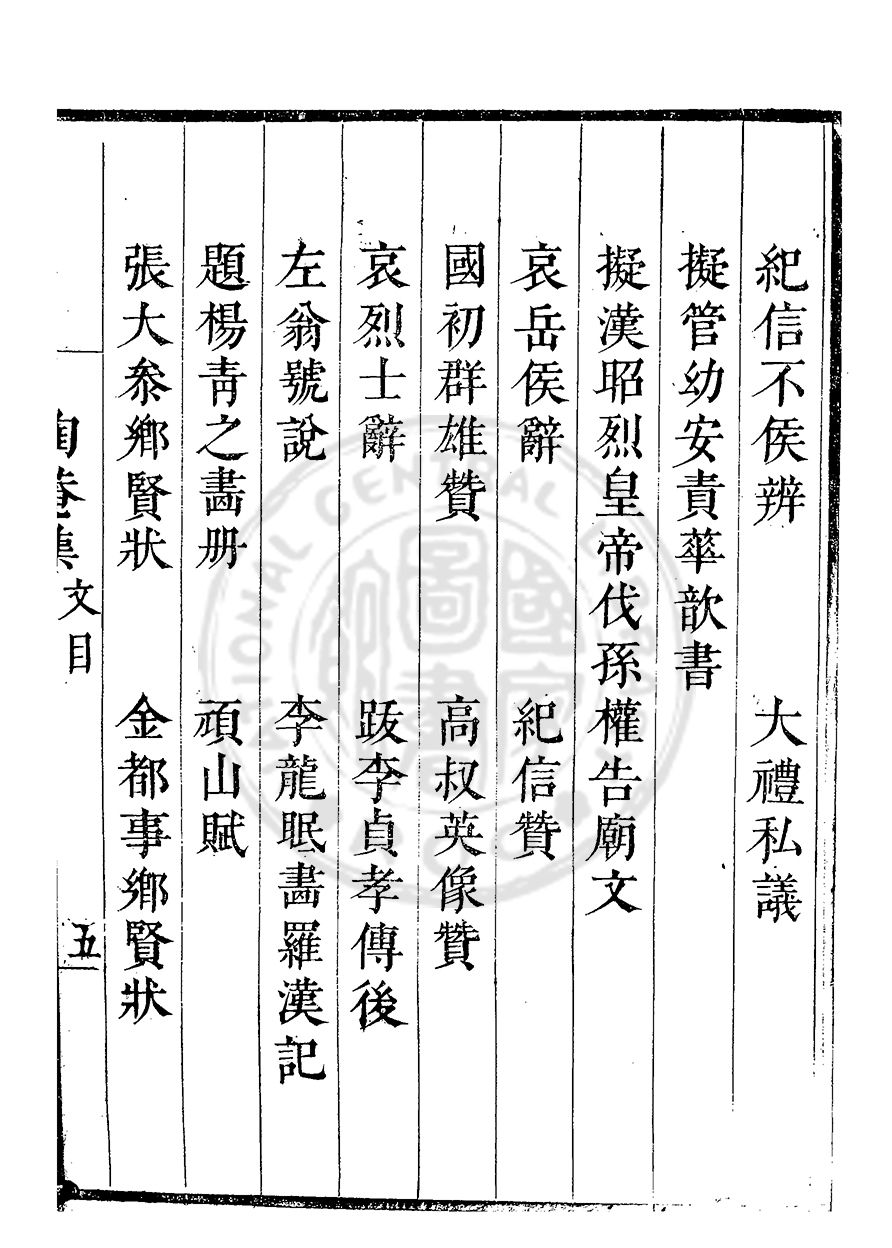 紀信不侯辨　大禮私議
擬管幼安責華歆書
擬漢昭烈皇帝伐孫權告廟文
哀岳侯辭　紀信贊
國初群雄贊　高叔英像贊
哀烈士辭　跋李貞孝傳後
左翁號說　李龍眠畵羅漢記
題楊青之畵册　頑山賦
張大叅鄉賢狀　金都事鄉賢狀
陶菴集　文目　五
國家圖書
NATIONAL CENTRAL